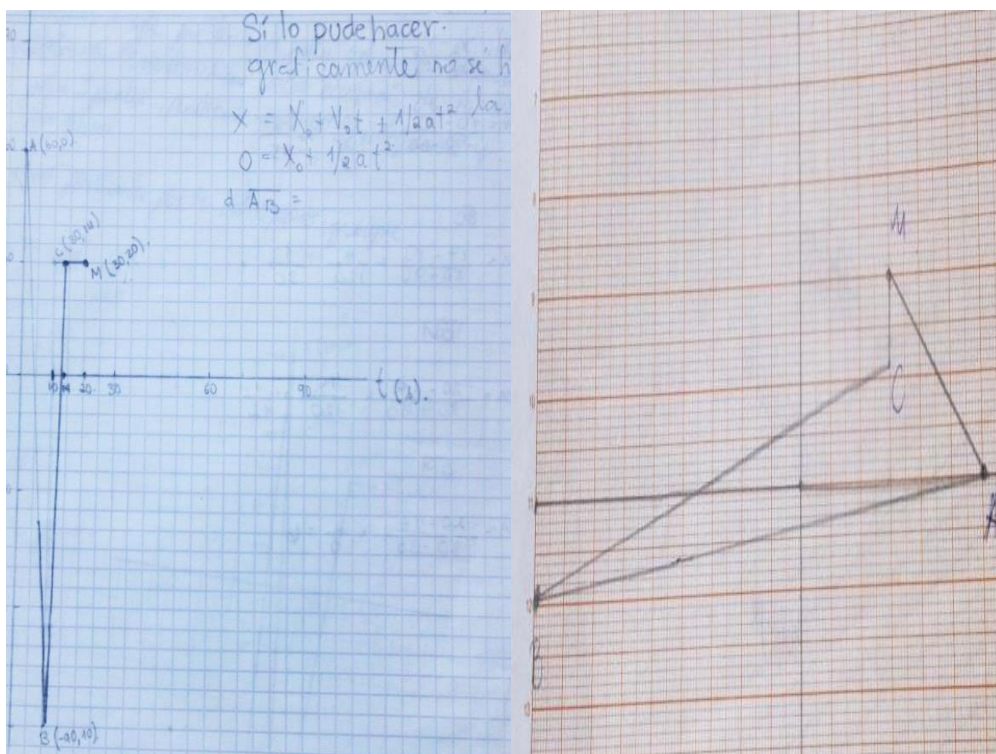 Sí lo pude hacer.
graficamente no sé
la
X = X₀ + V₀t + 1/2at²
0 = X₀ + 1/2at²
d AB =
A(60,0)
M(30,20).
t(s).
10 20 30 60 90
B(-90,10)
M
C
A
B